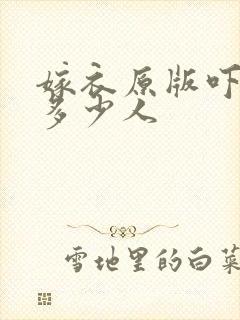 嫁衣原版吓
多少人
雪地里的白菜